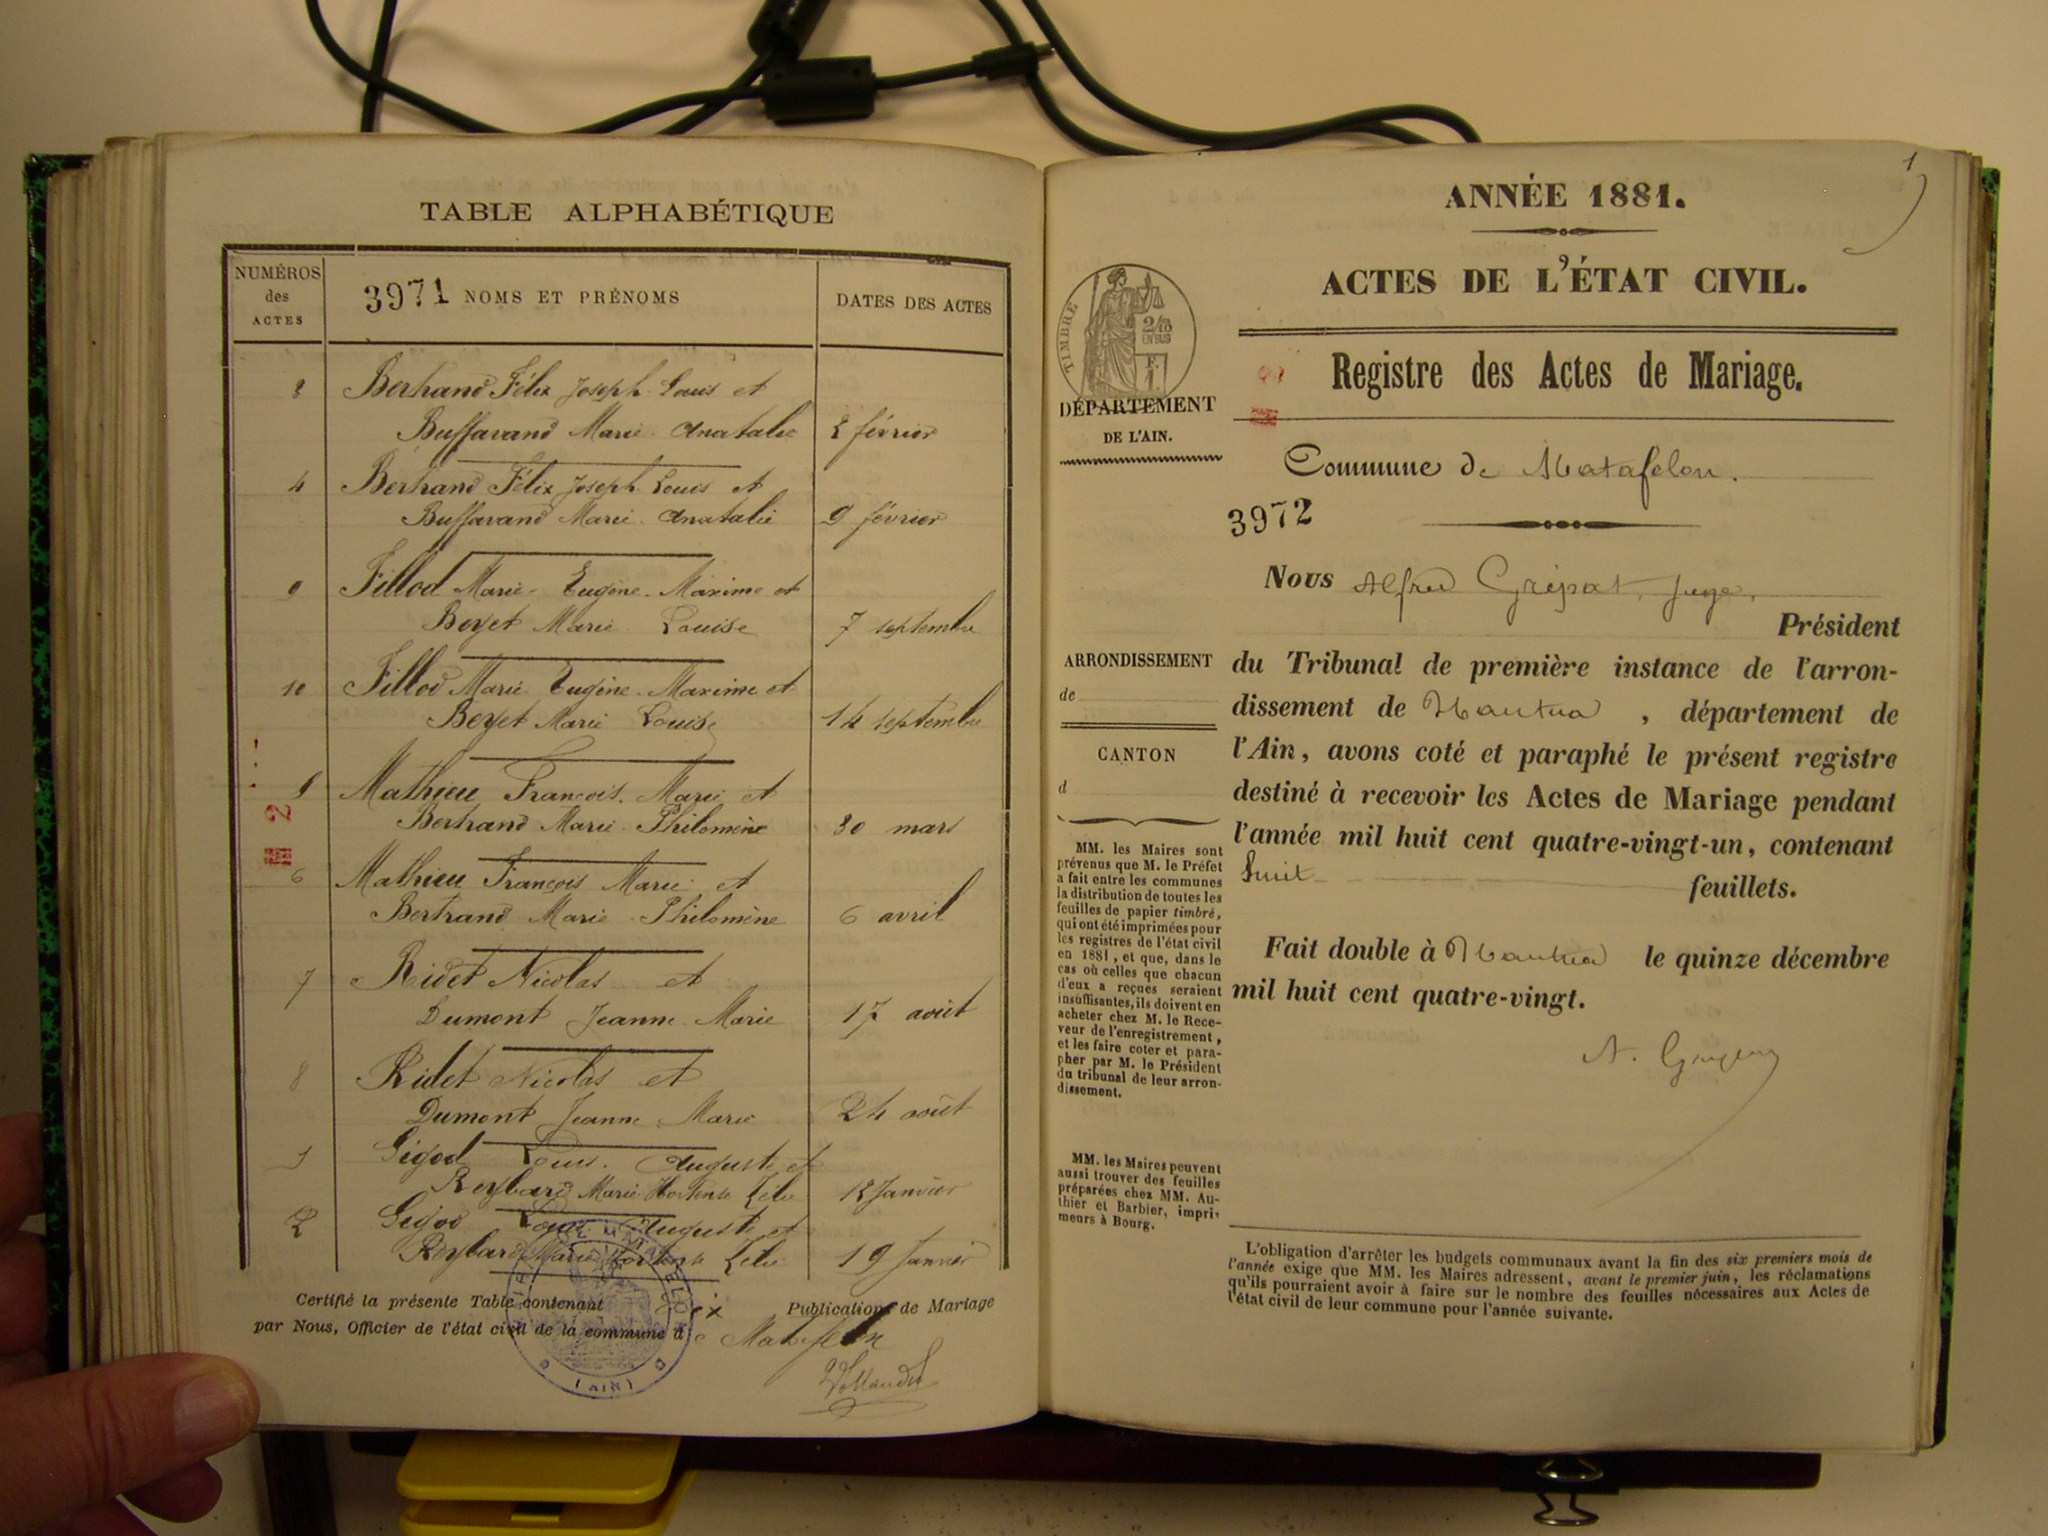 TABLE ALPHABÉTIQUE
NUMÉROS des ACTES
3971 NOMS ET PRÉNOMS
DATES DES ACTES
Bertrand Félix Joseph Louis et
Buffavand Marie Anatalie 2 février
4 Bertrand Félix Joseph Louis et
Buffavand Marie Anatalie 9 février
9 Fillod Marie Eugène Maxime et
Beyet Marie Louise 7 septembre
10 Fillod Marie Eugène Maxime et
Beyet Marie Louise 14 septembre
Mathieu François Marie et
Bertrand Marie Philomène 30 mars
6 Mathieu François Marie et
Bertrand Marie Philomène 6 avril
7 Ridet Nicolas et
Dumont Jeanne Marie 17 août
8 Ridet Nicolas et
Dumont Jeanne Marie 24 août
1 Gigod Louis Auguste et
Reybard Marie Hortense 12 Janvier
2 Gigod Louis Auguste et
Reybard Marie Hortense 19 Janvier
Certifié la présente Table contenant dix Publications de Mariage
par Nous, Officier de l'état civil de la commune de Matafelon
(AIN)
1
ANNÉE 1881.
ACTES DE L'ÉTAT CIVIL.
TIMBRE
2/10 EN SUS
F. 1.
DÉPARTEMENT
DE L'AIN.
Registre des Actes de Mariage.
Commune de Matafelon.
3972
Nous Alfred Grépat, juge,
Président
du Tribunal de première instance de l'arron-
dissement de Nantua, département de
l'Ain, avons coté et paraphé le présent registre
destiné à recevoir les Actes de Mariage pendant
l'année mil huit cent quatre-vingt-un, contenant
huit feuillets.
Fait double à Nantua le quinze décembre
mil huit cent quatre-vingt.
ARRONDISSEMENT
de
CANTON
d
MM. les Maires sont
prévenus que M. le Préfet
a fait entre les communes
la distribution de toutes les
feuilles de papier timbré,
qui ont été imprimées pour
les registres de l'état civil
en 1881, et que, dans le
cas où celles que chacun
d'eux a reçues seraient
insuffisantes, ils doivent en
acheter chez M. le Rece-
veur de l'enregistrement,
et les faire coter et para-
pher par M. le Président
du tribunal de leur arron-
dissement.
MM. les Maires peuvent
aussi trouver des feuilles
préparées chez MM. Au-
thier et Barbier, impri-
meurs à Bourg.
L'obligation d'arrêter les budgets communaux avant la fin des six premiers mois de
l'année exige que MM. les Maires adressent, avant le premier juin, les réclamations
qu'ils pourraient avoir à faire sur le nombre des feuilles nécessaires aux Actes de
l'état civil de leur commune pour l'année suivante.